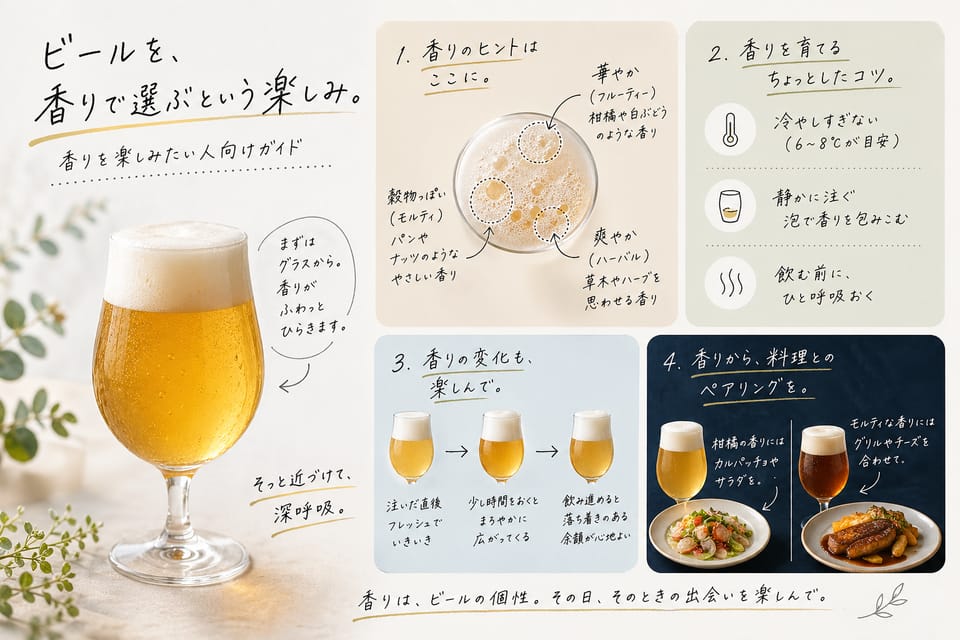 ビールを、
香りで選ぶという楽しみ。
香りを楽しみたい人向けガイド
まずは
グラスから。
香りが
ふわっと
ひらきます。
そっと近づけて、
深呼吸。
1. 香りのヒントは
ここに。
華やか
(フルーティー)
柑橘や白ぶどう
のような香り
穀物っぽい
(モルティ)
パンや
ナッツのような
やさしい香り
爽やか
(ハーバル)
草木やハーブを
思わせる香り
2. 香りを育てる
ちょっとしたコツ。
冷やしすぎない
(6~8℃が目安)
静かに注ぐ
泡で香りを包みこむ
飲む前に、
ひと呼吸おく
3. 香りの変化も、
楽しんで。
注いだ直後
フレッシュで
いきいき
少し時間をおくと
まろやかに
広がってくる
飲み進めると
落ち着きのある
余韻が心地よい
4. 香りから、料理との
ペアリングを。
柑橘の香りには
カルパッチョや
サラダを。
モルティな香りには
グリルやチーズを
合わせて。
香りは、ビールの個性。その日、そのときの出会いを楽しんで。